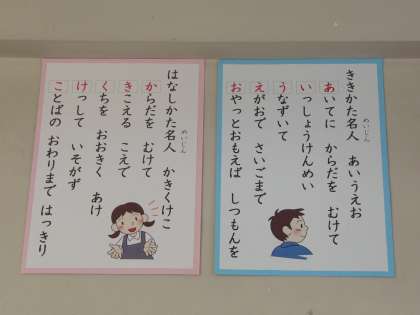 ききかた名人 あいうえお
めいじん
あいてに からだを むけて
いっしょうけんめい
うなずいて
えがおで さいごまで
おやっとおもえば しつもんを
はなしかた名人 かきくけこ
めいじん
からだを むけて
きこえる こえで
くちを おおきく あけ
けっして いそがず
ことばの おわりまで はっきり